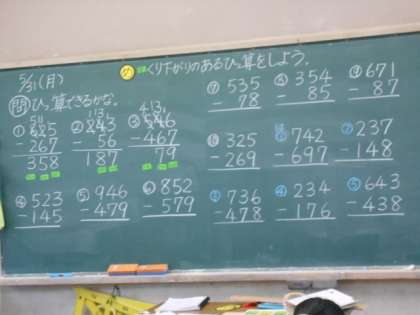 5/31(月)
㋱ くり下がりのあるひっ算をしよう。
問 ひっ算できるかな。
① 625
- 267
358
② 243
- 56
187
③ 546
- 467
79
④ 523
- 145
⑤ 946
- 479
⑥ 852
- 579
⑦ 535
- 78
⑧ 354
- 85
⑨ 671
- 87
⑩ 325
- 269
742
- 697
237
- 148
736
- 478
④ 234
- 176
⑤ 643
- 438